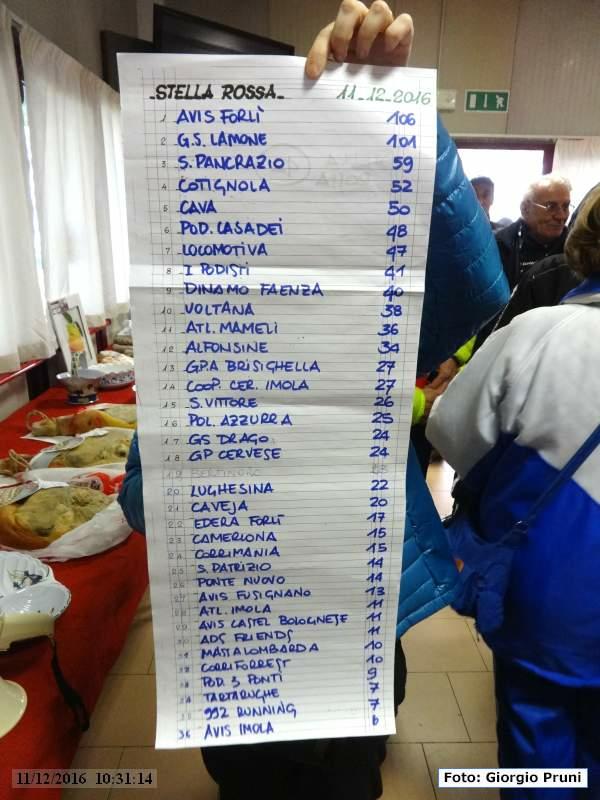 STELLA ROSSA 11_12_2016
1 AVIS FORLÌ 106
2 G.S. LAMONE 101
3 S. PANCRAZIO 59
4 COTIGNOLA 52
5 CAVA 50
6 POD. CASADEI 48
7 LOCOMOTIVA 47
8 I PODISTI 41
9 DINAMO FAENZA 40
10 VOLTANA 38
11 ATL. MAMELI 36
12 ALFONSINE 34
13 GP.A BRISIGHELLA 27
14 COOP. CER. IMOLA 27
15 S. VITTORE 26
16 POL. AZZURRA 25
17 GS DRAGO 24
18 GP CERVESE 24
19 23
20 LUGHESINA 22
21 CAVEJA 20
22 EDERA FORLÌ 17
23 CAMERLONA 15
24 CORRIMANIA 15
25 S. PATRIZIO 14
26 PONTE NUOVO 14
27 AVIS FUSIGNANO 13
28 ATL. IMOLA 11
29 AVIS CASTEL BOLOGNESE 11
30 ADS FRIENDS 11
31 MASSALOMBARDA 10
32 CORRIFORREST 10
33 POD. 3 PONTI 9
34 TARTARUGHE 7
35 992 RUNNING 7
36 AVIS IMOLA 6
11/12/2016 10:31:14
Foto: Giorgio Pruni